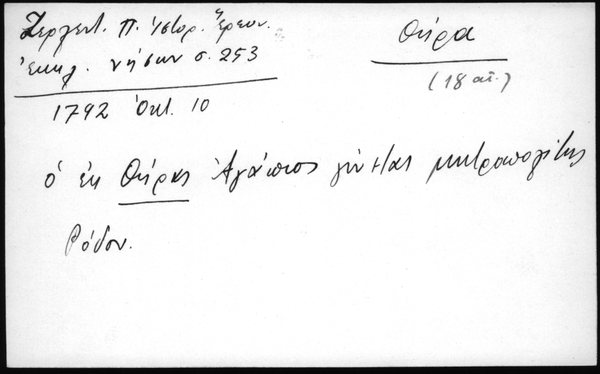 Ζερλεντ. Π. Ἱστορ. Ἔρευν.
Ἐκκλ. νήσων σ. 253
Θήρα
(18 αἰ.)
1792 Ὀκτ. 10
ὁ ἐκ Θήρας Ἀγάπιος γίνεται μητροπολίτης
Ρόδου.